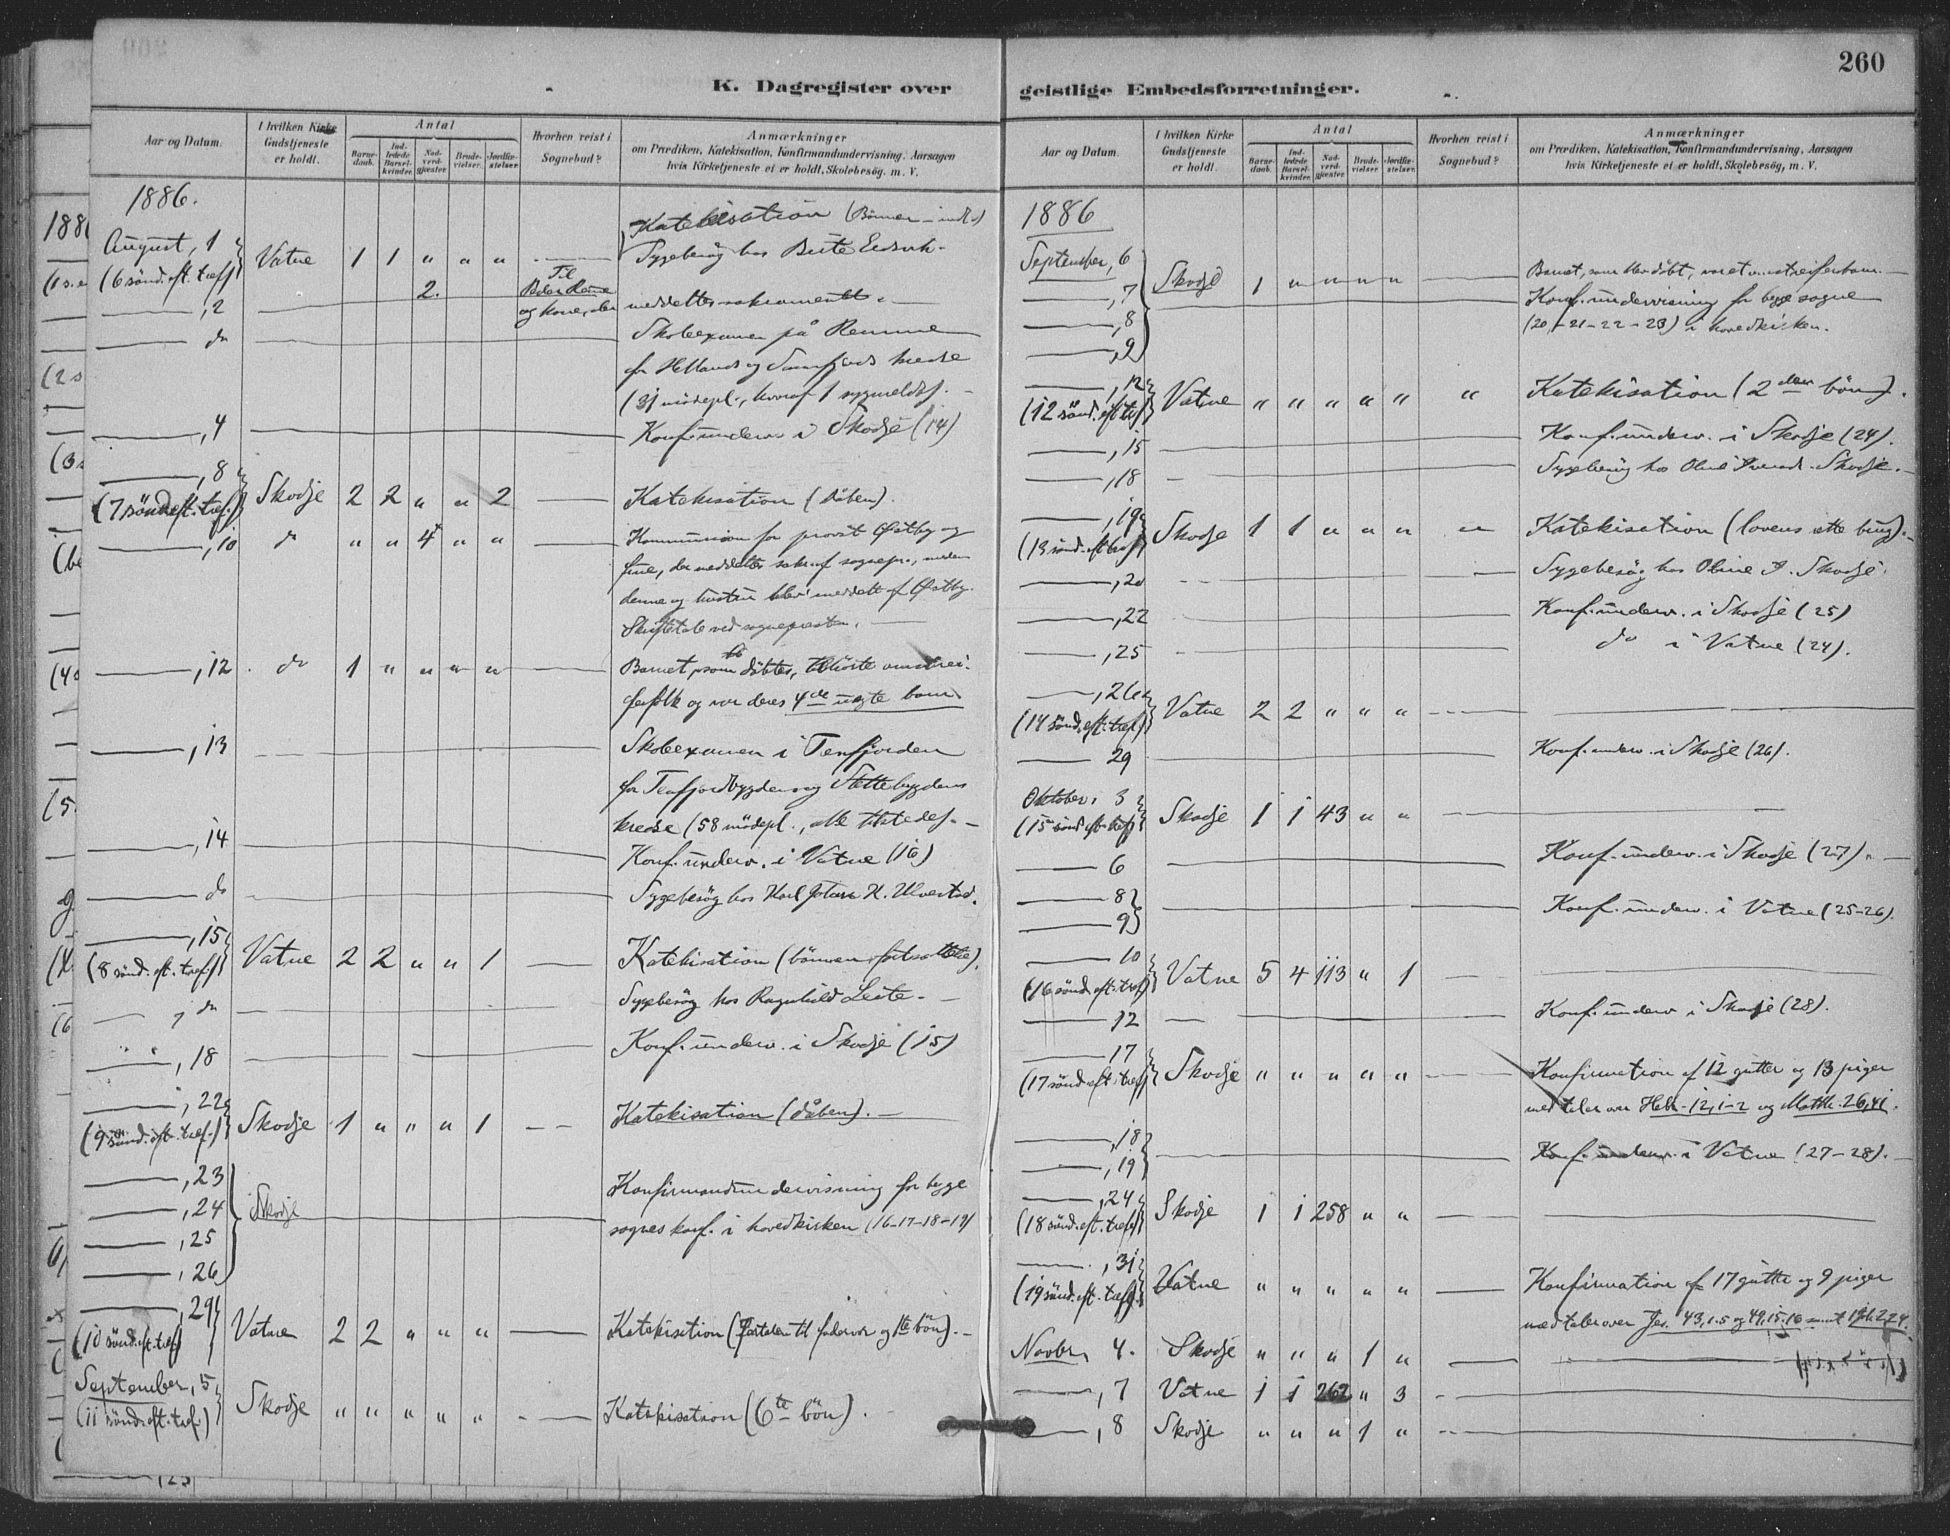 260
K. Dagregister over
Aar og Datum.
I hvilken Kirke Gudstjeneste er holdt.
Antal
Barnedaab.
Indledede Barselkvinder.
Nadverdgjæster.
Brudevielser.
Jordfæstelser.
Hvorhen reist i Sognebud?
Anmærkninger
om Prædiken, Katekisation, Konfirmandundervisning, Aarsagen
hvis Kirketjeneste ei er holdt, Skolebesøg. m. V.
1886.
Katekisation (Bönnen - indl.)
August, 1
(6 sönd. eft. tref) Vatne 1 1 " " " Sygebesøg hos Brite Eidsvik.
——, 2 2. Til Peder Remme og kone, der meddeltes sakramentet.
—— do Skoleexamen på Remme
for Hellands og kredse
(31 mödepl., hvoraf 1 sygmeldt).
——, 4 Konf. underv. i Skodje (14)
——, 8
(7 sönd. eft. tref.) Skodje 2 2 " " 2 Katekisation (dåben).
——, 10 do " " 4 " " Kommunion for provst Østby og
frue, der meddeltes sakr. af sognepr., medens
denne og hustru blev meddelt af Østby.
Skriftetale ved sognepresten.
——, 12 do 1 " " " " Barnet, som döbtes, tilhörte omstrei-
ferfolk og var deres 4de uægte barn
——, 13 Skoleexamen i Tenfjorden
for Tenfjordbygdens og Slettebygdens
kredse (58 mödepl., alle tilstede).
——, 14 Konf. underv. i Vatne (16)
—— do Sygebesøg hos Karl Johan K. Ulvestad.
——, 15
(8 sönd. eft. tref.) Vatne 2 2 " " 1 Katekisation (bönnen, fortsattes).
——, do Sygebesøg hos Ragnhild Leite.
——, 18 Konf. underv. i Skodje (15)
——, 22
(9 sönd. eft. tref.) Skodje 1 " " " 1 Katekisation (dåben).
——, 23
——, 24 Skodje Konfirmandundervisning for begge
——, 25 sognes konf. i hovedkirken (16-17-18-19)
——, 26
——, 29
(10 sönd. eft. tref) Vatne 2 2 " " " Katekisation (fortalen til fadervor og 1te bön).
September, 5
(11 sönd. eft. tref.) Skodje " " " " " Katekisation (6te bön).
geistlige Embedsforretninger.
Aar og Datum.
I hvilken Kirke Gudstjeneste er holdt.
Antal
Barnedaab.
Indledede Barselkvinder.
Nadverdgjæster.
Brudevielser.
Jordfæstelser.
Hvorhen reist i Sognebud?
Anmærkninger
om Prædiken, Katekisation, Konfirmandundervisning, Aarsagen
hvis Kirketjeneste ei er holdt, Skolebesøg, m. V.
1886
September, 6 Skodje 1 " " " " Barnet, som blev döbt, var et omstreiferbarn.
——, 7 Konf. undervisning for begge sogne
——, 8 (20-21-22-23) i hovedkirken.
——, 9
——, 12
(12 sönd. eft. tref) Vatne " " " " " " Katekisation (2den bön).
——, 15 Konf. underv. i Skodje (24).
——, 18 Sygebesög hos Skodje.
——, 19
(13 sönd. eft. tref) Skodje 1 1 " " " Katekisation (lovens brug).
——, 20 Sygebesøg hos Oline Skodje.
——, 22 Konf. underv. i Skodje (25)
——, 25 do i Vatne (24).
——, 26
(14 sönd. eft. tref.) Vatne 2 2 " " "
—— 29 Konf. underv. i Skodje (26).
Oktober, 3
(15 sönd. eft. tref) Skodje 1 1 43 " "
—— 6 Konf. underv. i Skodje (27).
—— 8
—— 9 Konf. underv. i Vatne (25-26).
—— 10
(16 sönd. eft. tref) Vatne 5 4 113 " 1
—— 12 Konf. underv. i Skodje (28).
—— 17
(17 sönd. eft. tref) Skodje " " " " " Konfirmation af 12 gutter og 13 piger
med taler over Hebr. 12, 1-2 og Matth. 26,41.
——, 18
——, 19 Konf. underv. i Vatne (27-28).
——, 24
(18 sönd. eft. tref) Skodje 1 1 258 " "
——, 31
(19 sönd. eft. tref.) Vatne " " " " " Konfirmation af 17 gutter og 9 piger
med taler over Jes. 43,1.5 og 49,15-16 samt
Novbr, 4. Skodje " " " 1 "
——, 7 Vatne 1 1 262 " 3
——, 8 Skodje " " " 1 "